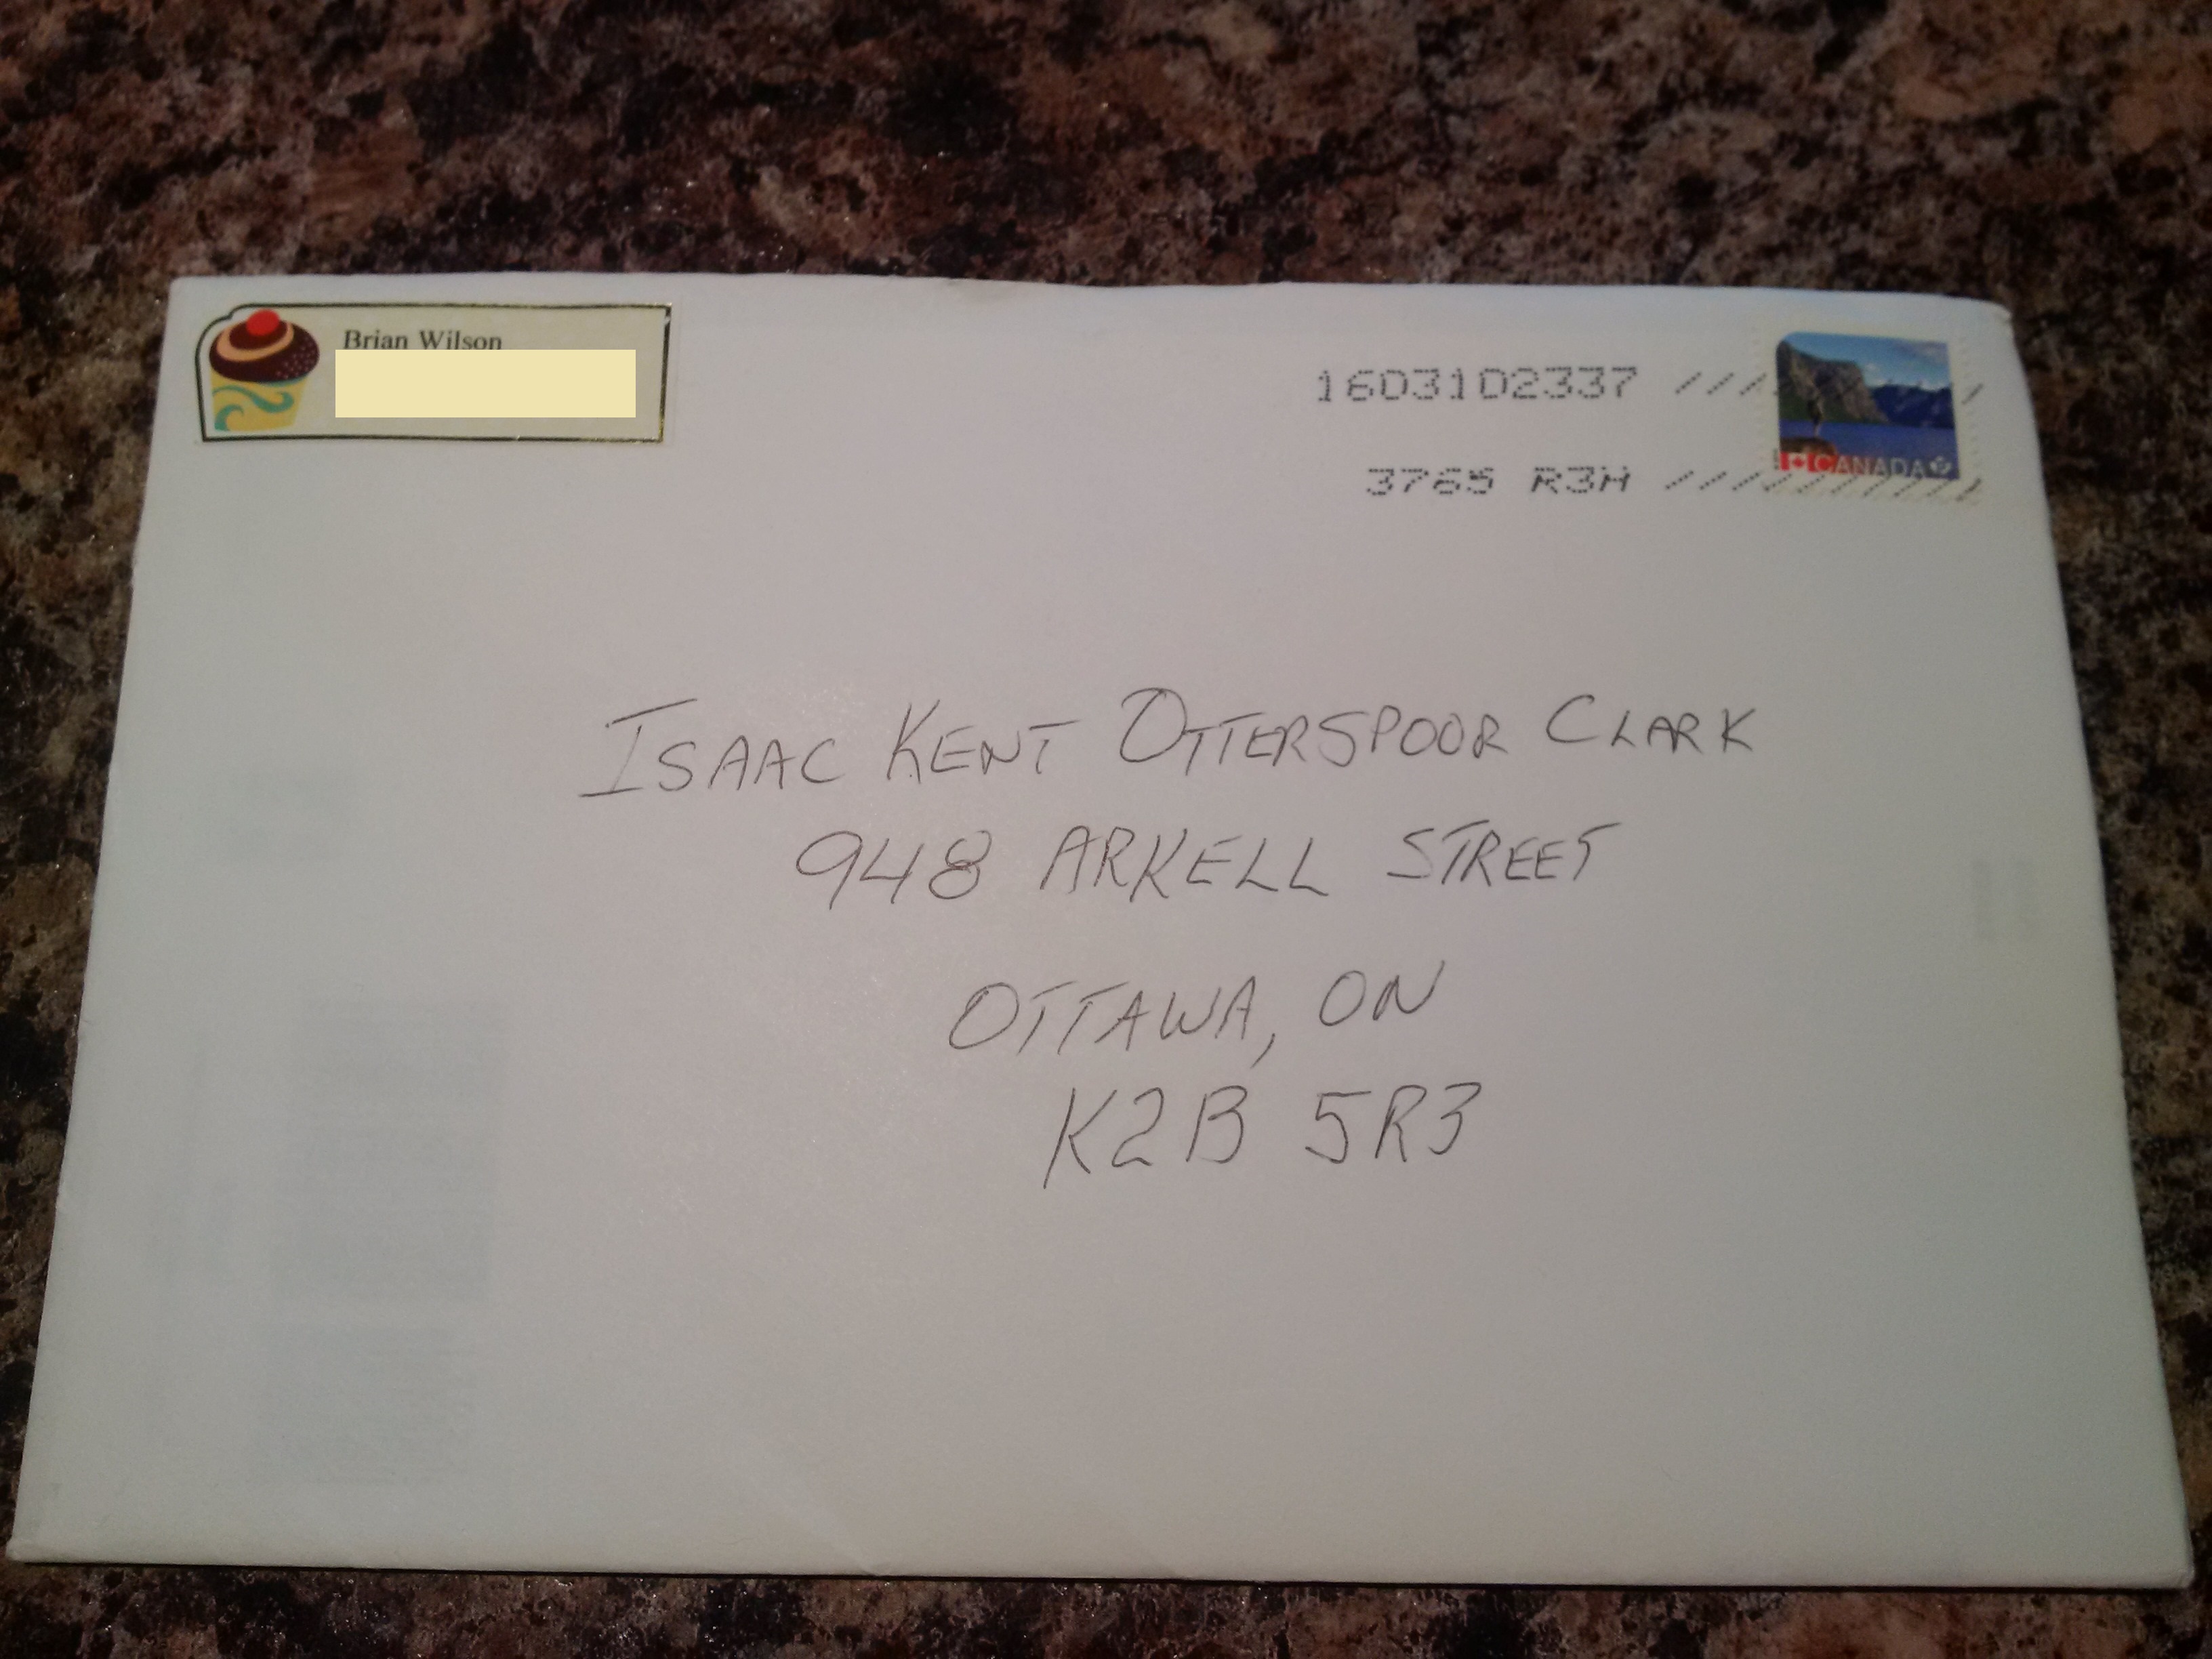 Brian Wilson
1603102337
3765 R3H
CANADA P
ISAAC KENT OTTERSPOOR CLARK
948 ARKELL STREET
OTTAWA, ON
K2B 5R3